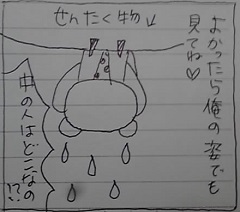 せんたく物↓
よかったら俺の姿でも
見てね♡
中の人はどこなの
!?